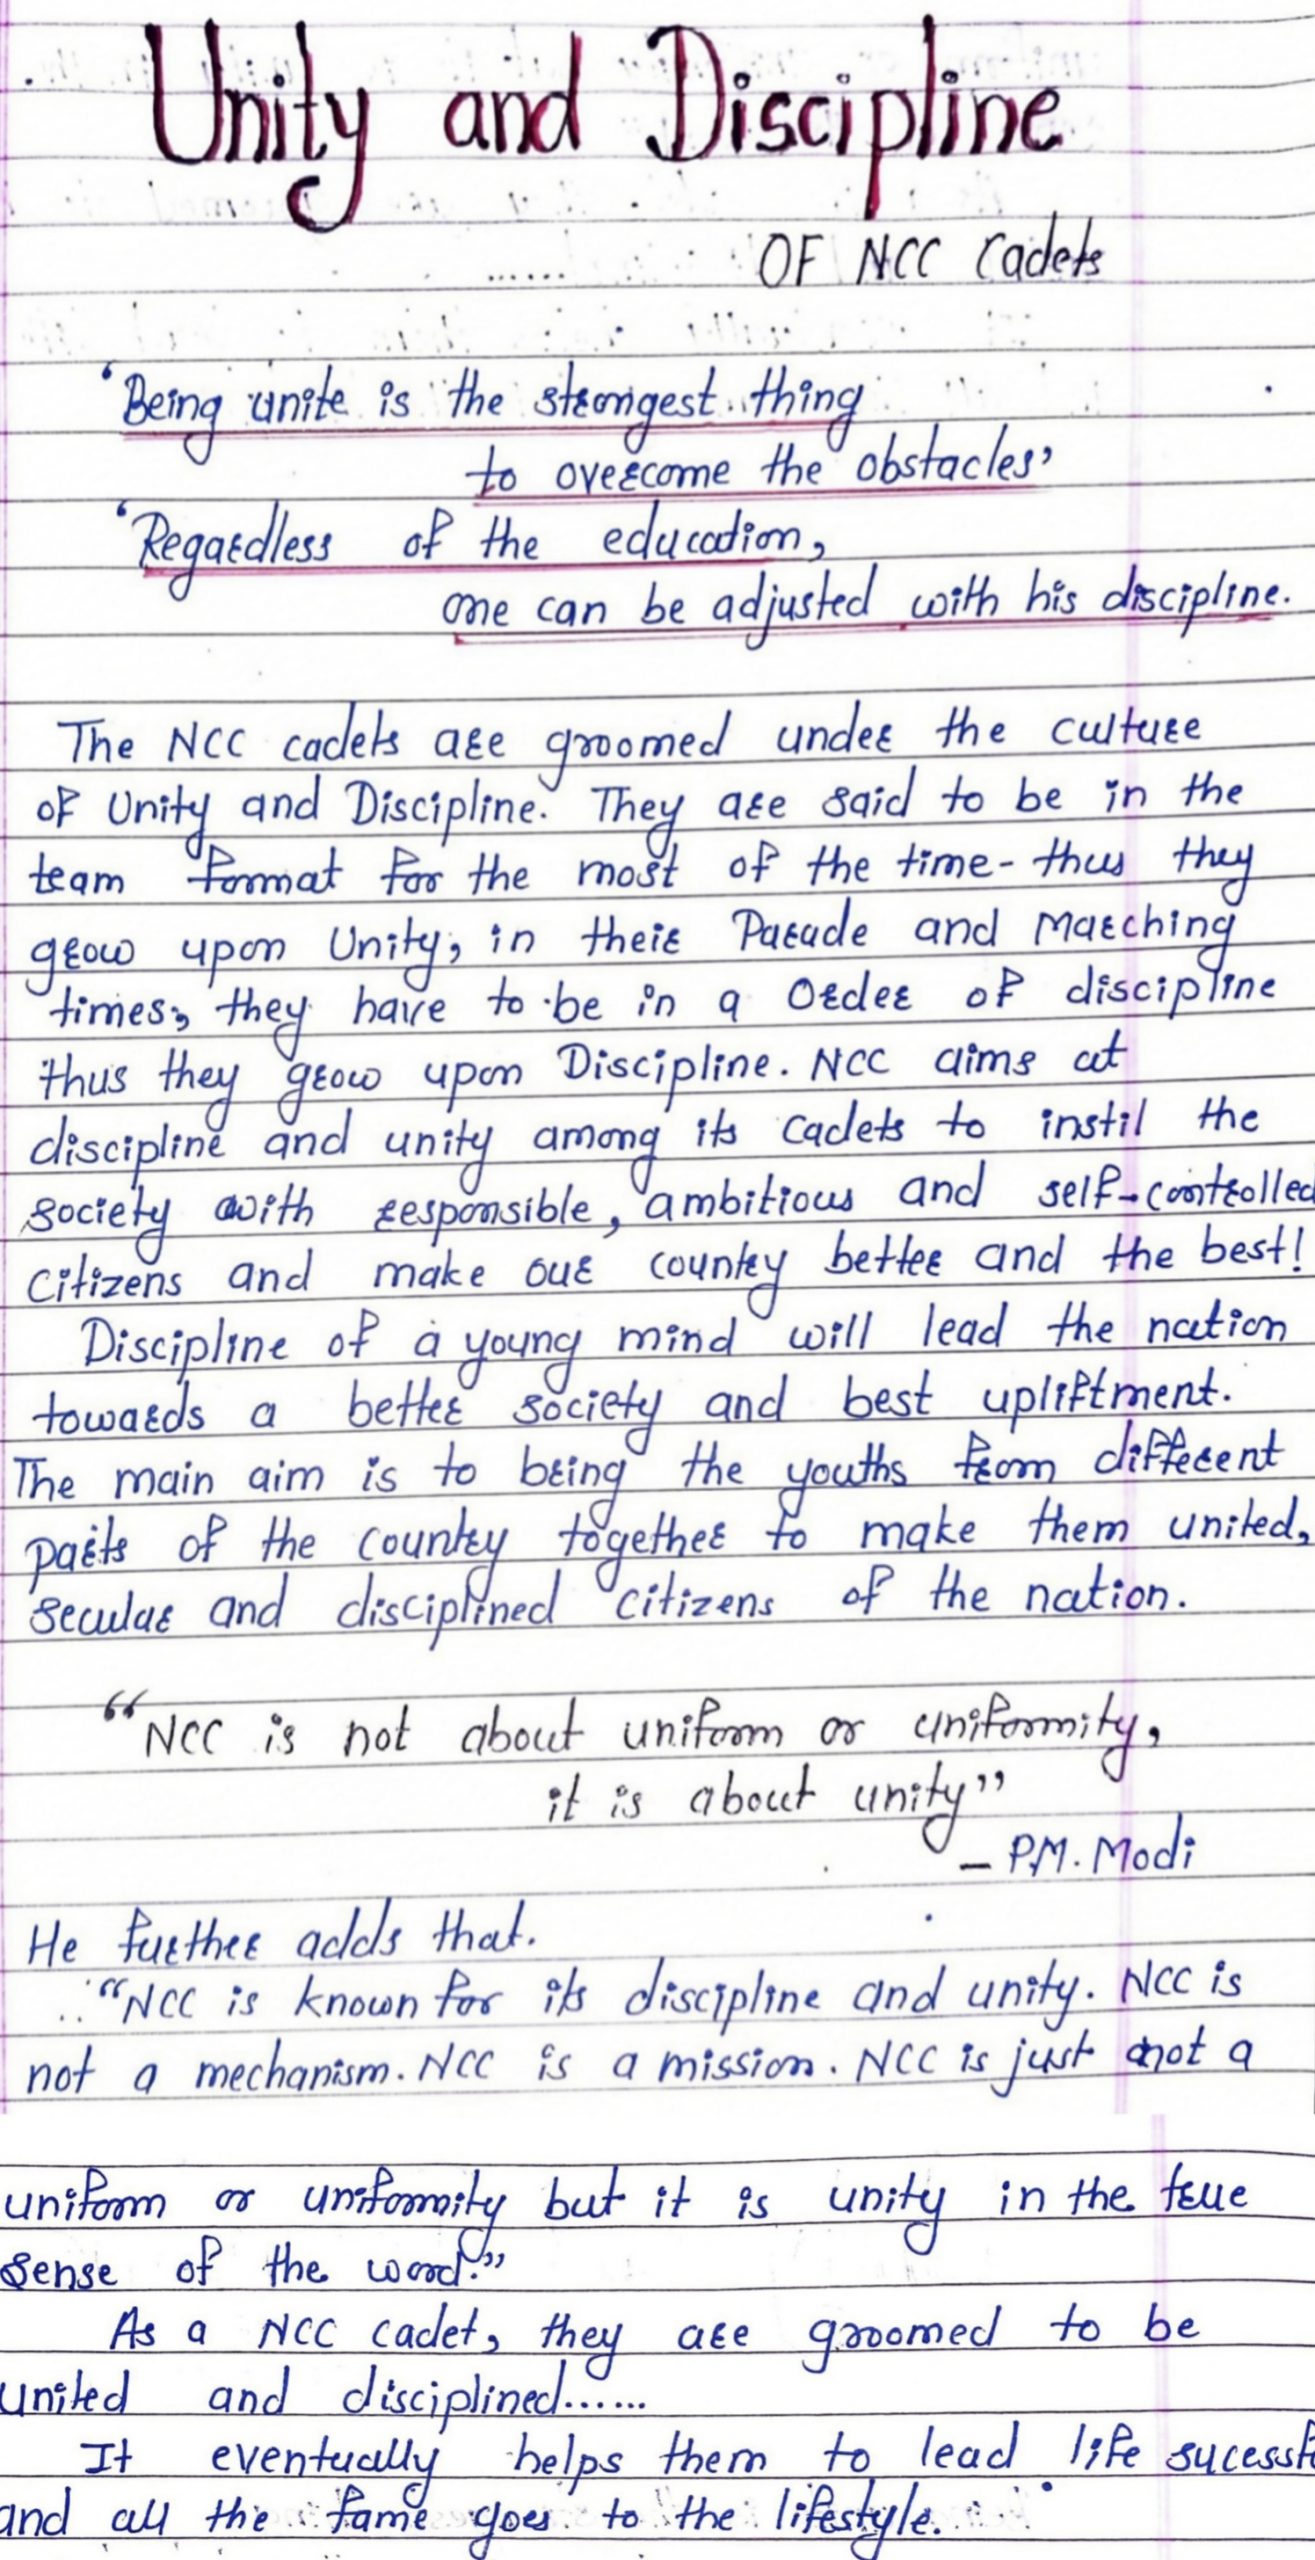 Unity and Discipline
...... OF NCC Cadets
'Being unite is the strongest thing
to overcome the obstacles'
'Regardless of the education,
one can be adjusted with his discipline.
The NCC cadets are groomed under the culture
of Unity and Discipline. They are said to be in the
team format for the most of the time- thus they
grow upon Unity, in their Parade and Marching
times, they have to be in a Order of discipline
thus they grow upon Discipline. NCC aims at
discipline and unity among its Cadets to instil the
society with responsible, ambitious and self-controlled
Citizens and make our country better and the best!
Discipline of a young mind will lead the nation
towards a better society and best upliftment.
The main aim is to bring the youths from different
parts of the country together to make them united,
secular and disciplined citizens of the nation.
"NCC is not about uniform or uniformity,
it is about unity"
- P.M. Modi
He further adds that.
.."NCC is known for its discipline and unity. NCC is
not a mechanism. NCC is a mission. NCC is just not a
uniform or uniformity but it is unity in the true
sense of the word."
As a NCC cadet, they are groomed to be
united and disciplined......
It eventually helps them to lead life sucessf
and all the fame goes to the lifestyle.